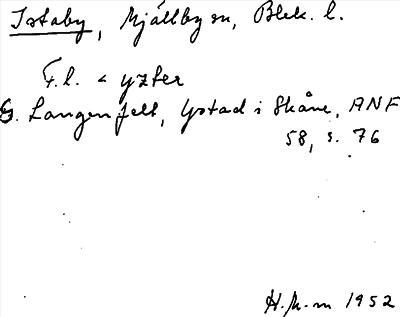 Istaby, Mjällby sn, Blek. l.
F.l. < yzter
G. Langenfelt, Ystad i Skåne, ANF
58, s. 76
H. p. m 1952